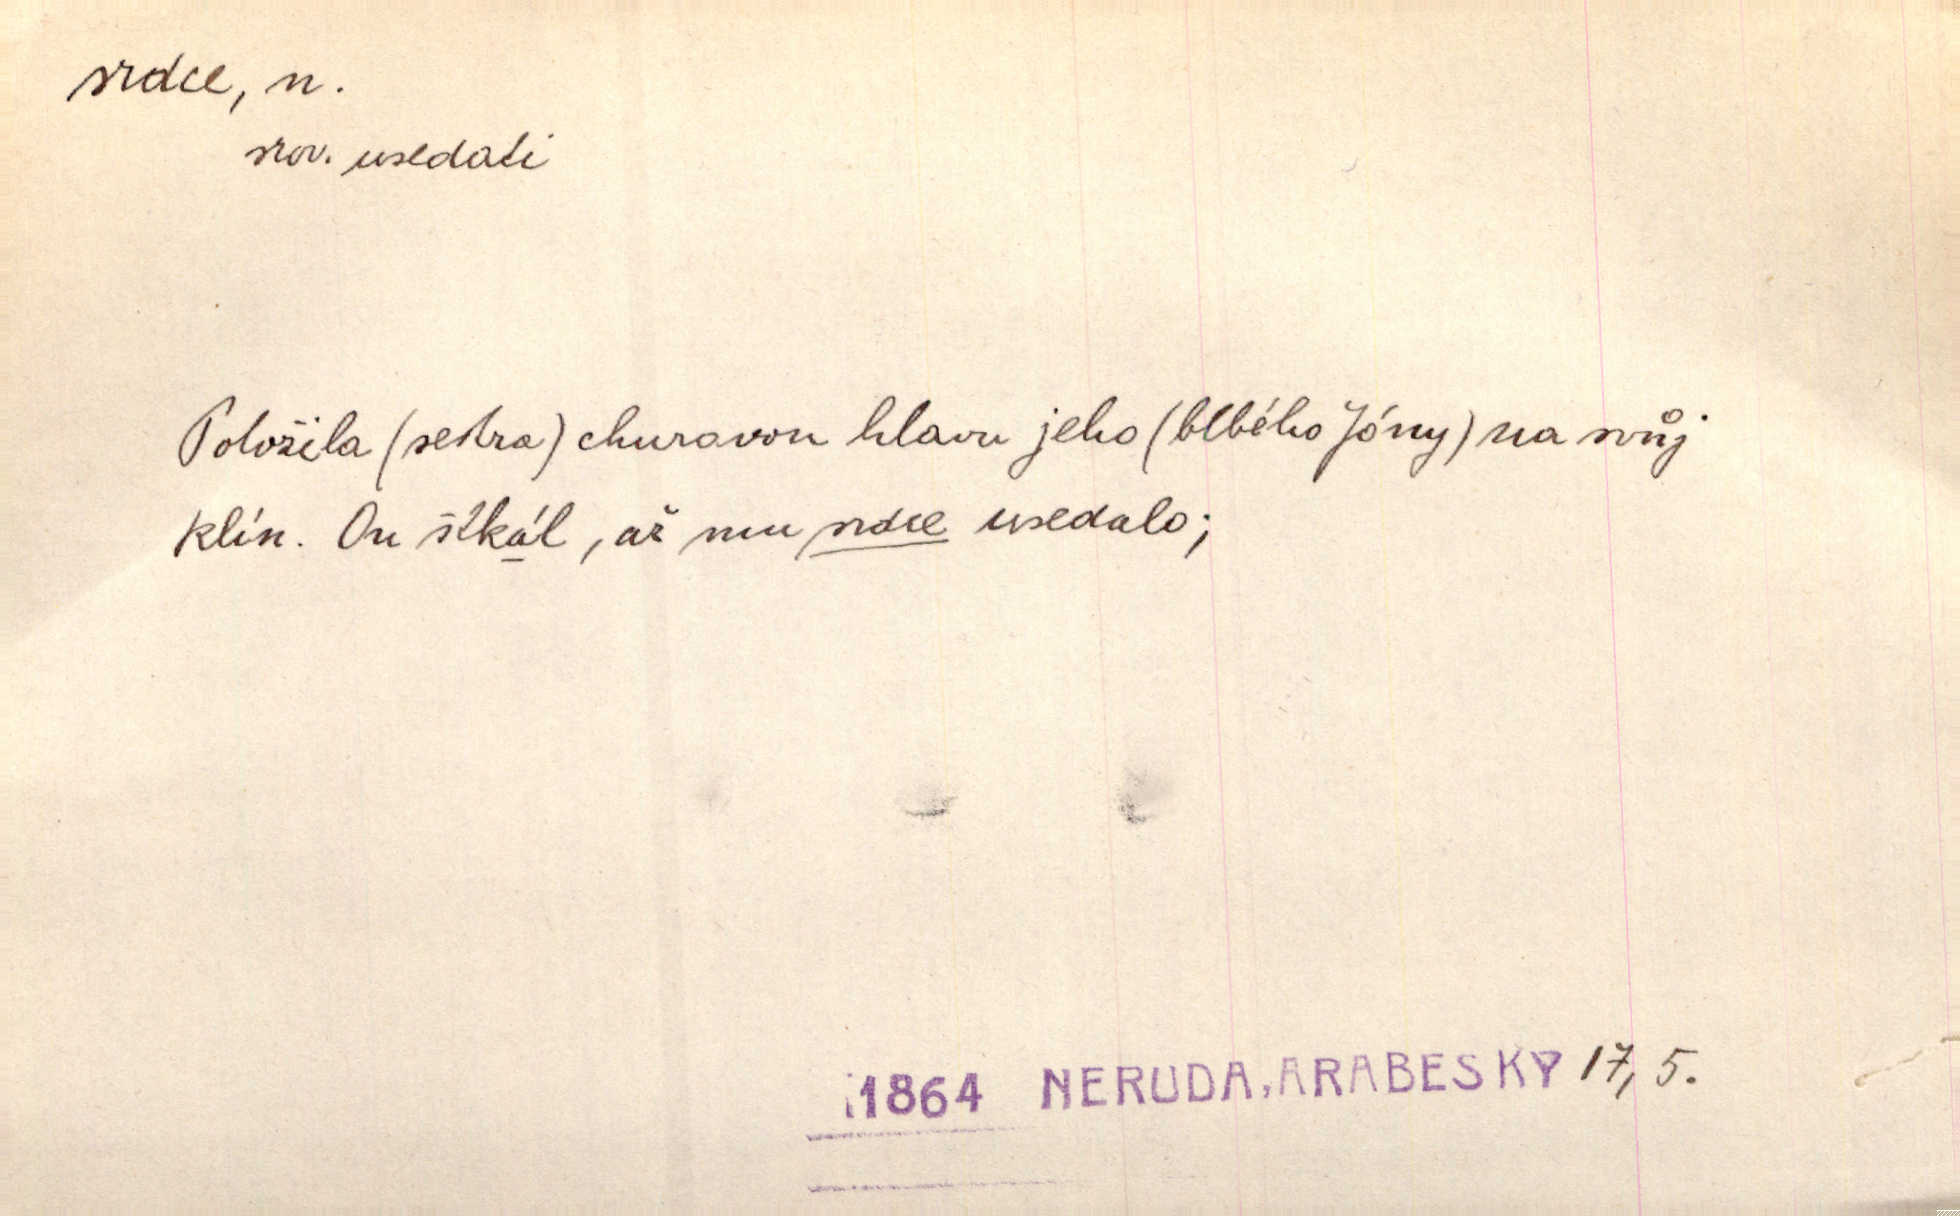 srdce, n.
srov. usedati
Položila (sestra) churavou hlavu jeho (blbého Jóny) na svůj
klín. On štkál, až mu srdce usedalo;
1864 NERUDA, ARABESKY 17, 5.